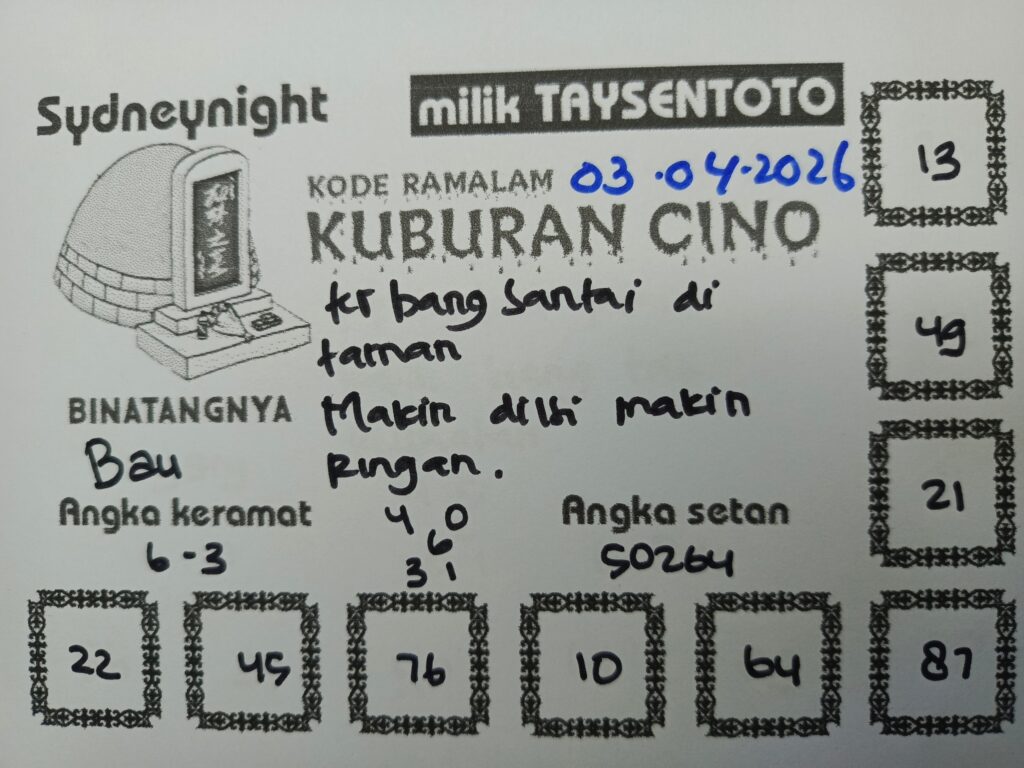 Sydneynight
milik TAYSENTOTO
KODE RAMALAM 03.04.2026
KUBURAN CINO
kr bang Santai di
taman
Makin diisi makin
Ringan.
BINATANGNYA
Bau
Angka keramat
6-3
4 0
6
3 1
Angka setan
50264
13
49
21
22 45 76 10 64 87